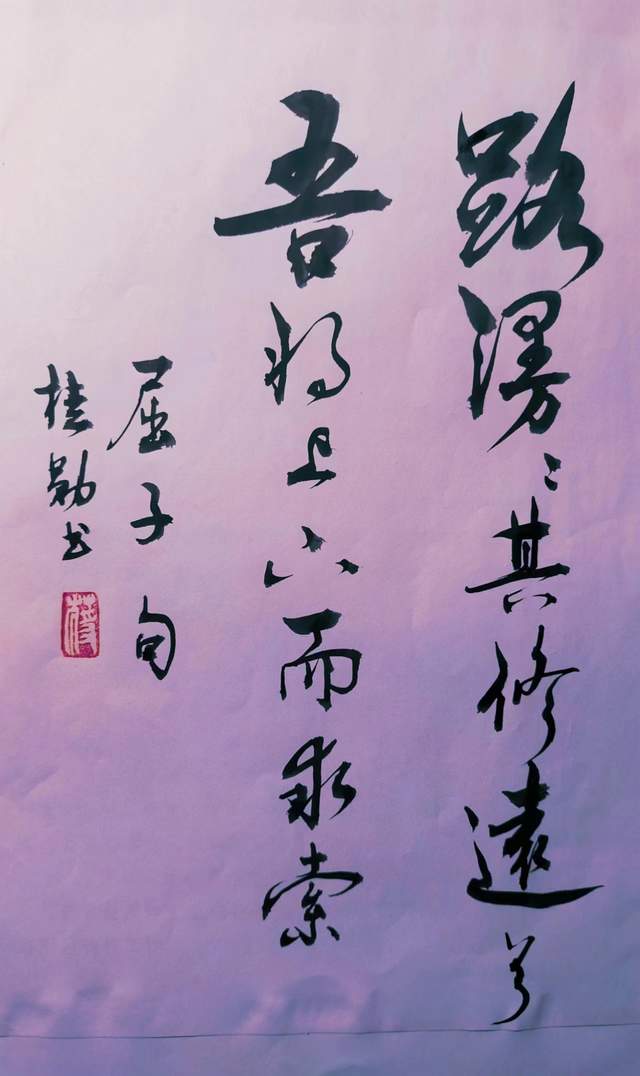 路漫〻其修遠兮
吾将上下而求索
屈子句
桂勋书